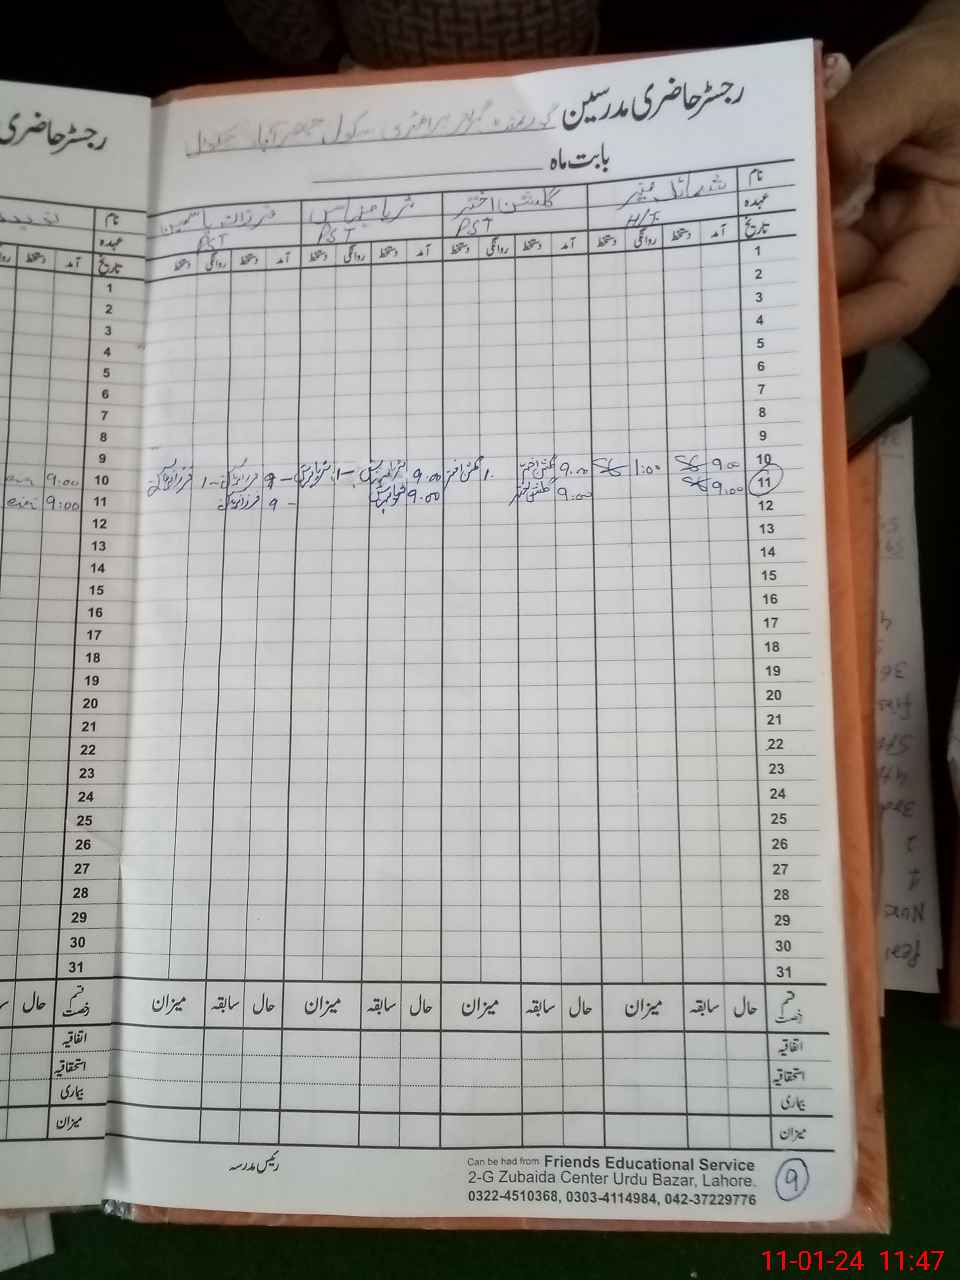 رجسٹر حاضری مدرسین گورنمنٹ گرلز پرائمری سکول
بابت ماہ
نام گلشن اختر فرزانہ یاسمین
عہدہ H/T PST PST PST
تاریخ آمد دستخط روانگی دستخط آمد دستخط روانگی دستخط آمد دستخط روانگی دستخط آمد دستخط روانگی دستخط
1
2
3
4
5
6
7
8
9
10 9.00 1:00 9.00 گلشن اختر 1. گلشن اختر 9.00 1- 9-  فرزانہ 1- فرزانہ
11 9.00 9:00 گلشن اختر 9.00 9- فرزانہ
12
13
14
15
16
17
18
19
20
21
22
23
24
25
26
27
28
29
30
31
قسم رخصت حال سابقہ میزان حال سابقہ میزان حال سابقہ میزان حال سابقہ میزان
اتفاقیہ
استحقاقیہ
بیماری
میزان
رئیس مدرسہ
Can be had from: Friends Educational Service
2-G Zubaida Center Urdu Bazar, Lahore.
0322-4510368, 0303-4114984, 042-37229776
9
رجسٹر حاضری
نام
عہدہ
تاریخ آمد دستخط
1
2
3
4
5
6
7
8
9
10 9:00
11 9:00
12
13
14
15
16
17
18
19
20
21
22
23
24
25
26
27
28
29
30
31
قسم رخصت حال
اتفاقیہ
استحقاقیہ
بیماری
میزان
36
5th
4th
3rd
2
1
11-01-24 11:47